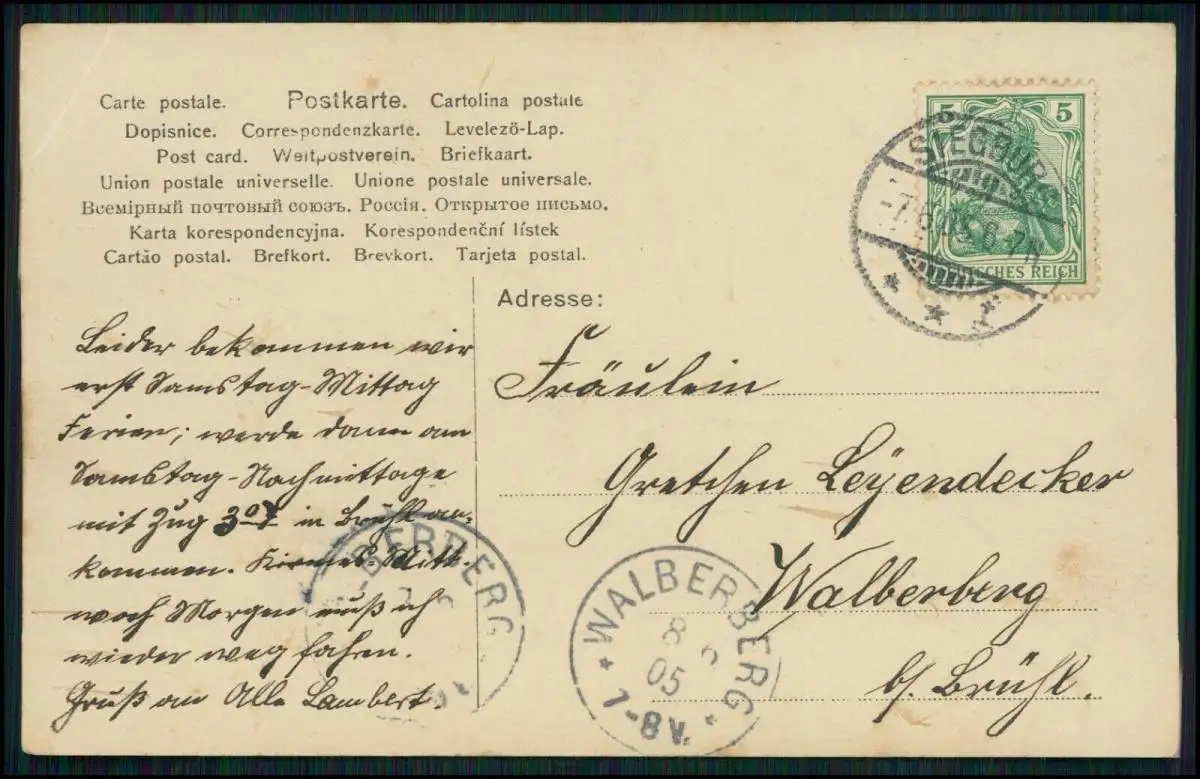 Carte postale. Postkarte. Cartolina postale
Dopisnice. Correspondenzkarte. Levelező-Lap.
Post card. Weltpostverein. Briefkaart.
Union postale universelle. Unione postale universale.
Всемірный почтовый союзъ. Россія. Открытое письмо.
Karta korespondencyjna. Korespondenční lístek
Cartão postal. Brefkort. Brevkort. Tarjeta postal.
5 5
DEUTSCHES REICH
SIEGBURG
-7.6.05. 6-7N
Adresse:
Fräulein
Gretchen Leÿendecker
Walberberg
b/ Brühl.
Leider bekommen wir
erst Samstag-Mittag
Ferien; werde dann am
Samstag-Nachmittage
mit Zug 3⁰⁷ in Brühl an-
kommen. Kirmes-Mitt-
woch Morgen muß ich
wieder weg fahren.
Gruß an Alle Lambert.
WALBERBERG
8 6
05
1-8V.
LBERBERG